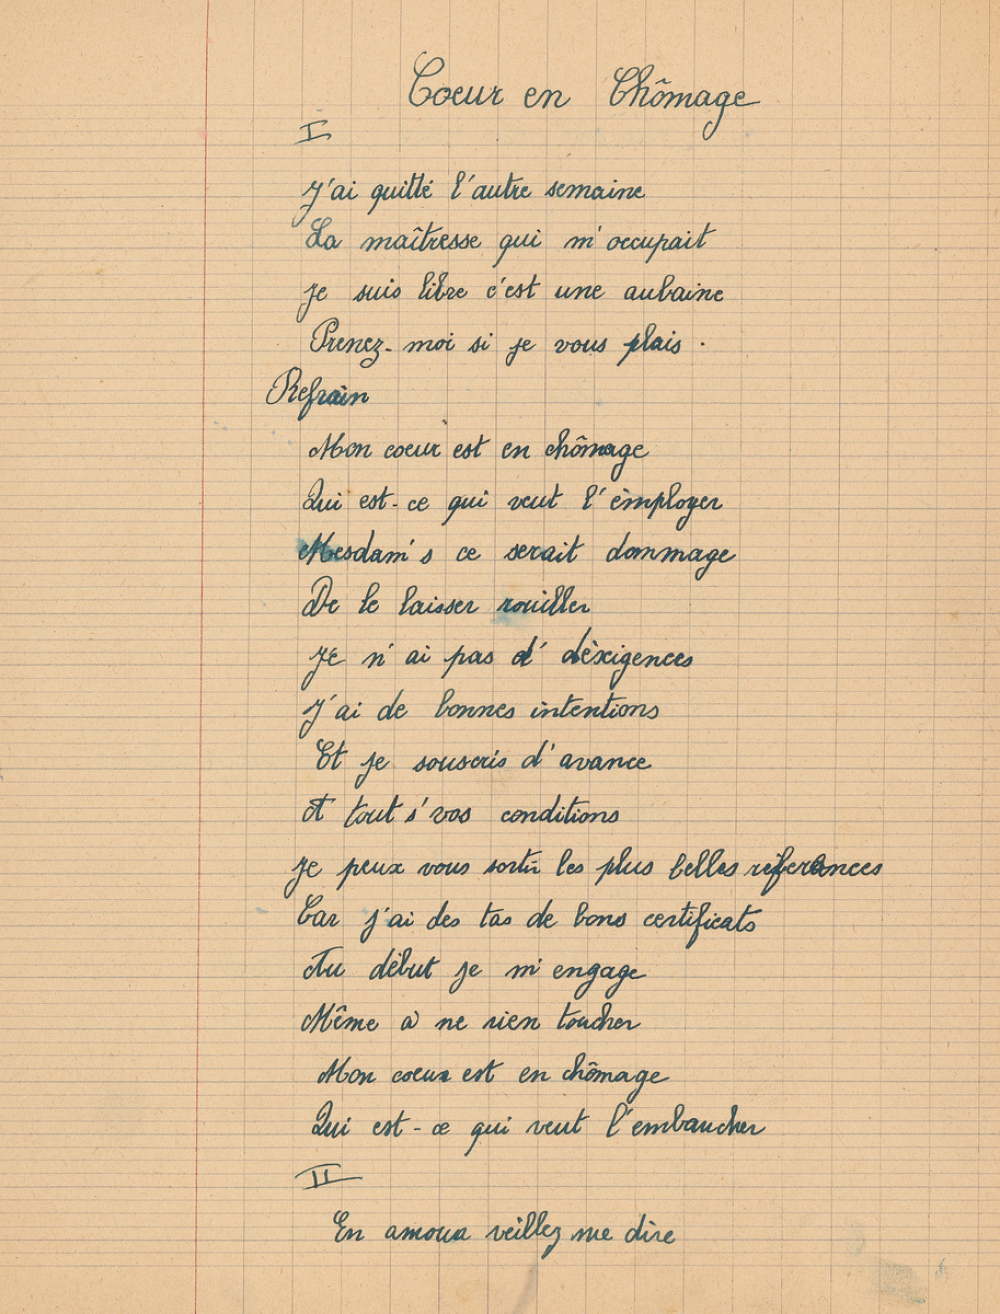 Coeur en Chômage
I
J'ai quitté l'autre semaine
La maîtresse qui m'occupait
Je suis libre c'est une aubaine
Prenez-moi si je vous plais.
Refrain
Mon coeur est en chômage
Qui est-ce qui veut l'émployer
Mesdam's ce serait dommage
De le laisser rouiller
Je n'ai pas d' déxigences
J'ai de bonnes intentions
Et je souscris d'avance
A tout s' vos conditions
Je peux vous sortir les plus belles réferences
Car j'ai des tas de bons certificats
Au début je m'engage
Même à ne rien toucher
Mon coeur est en chômage
Qui est-ce qui veut l'embaucher
II
En amour veillez me dire